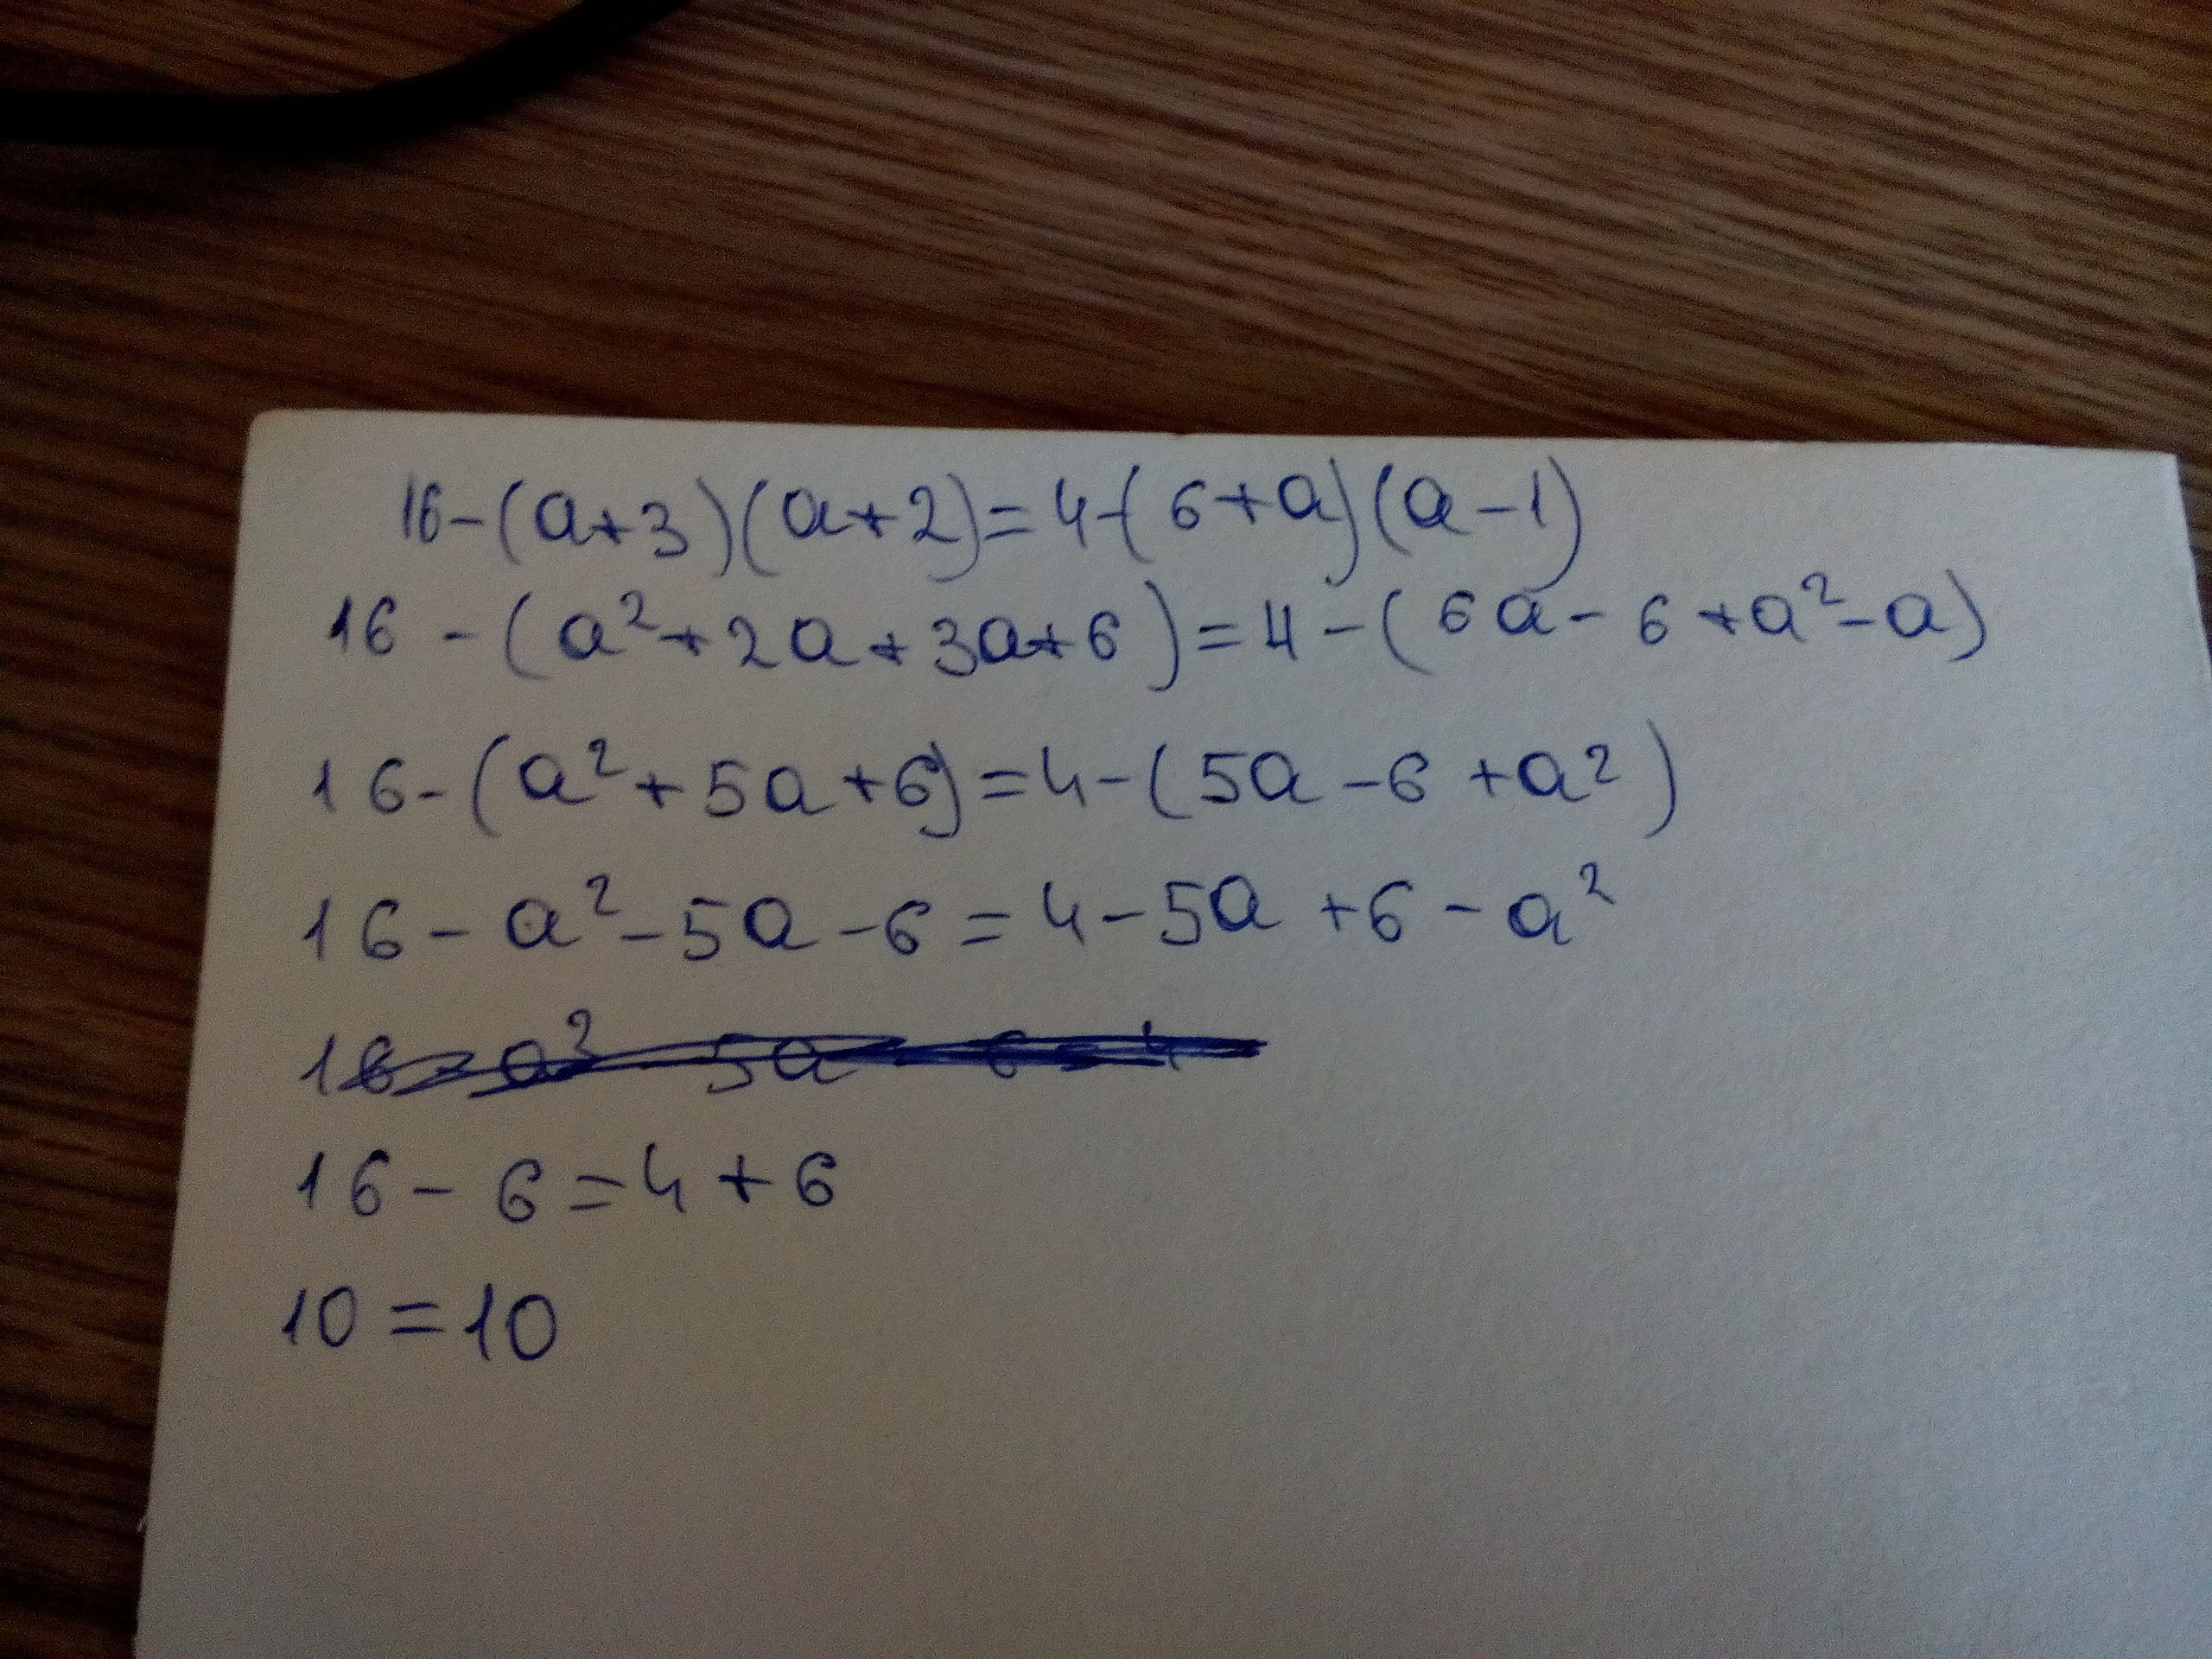 16-(a+3)(a+2)=4-(6+a)(a-1)
16-(a²+2a+3a+6)=4-(6a-6+a²-a)
16-(a²+5a+6)=4-(5a-6+a²)
16-a²-5a-6=4-5a+6-a²
16-6=4+6
10=10